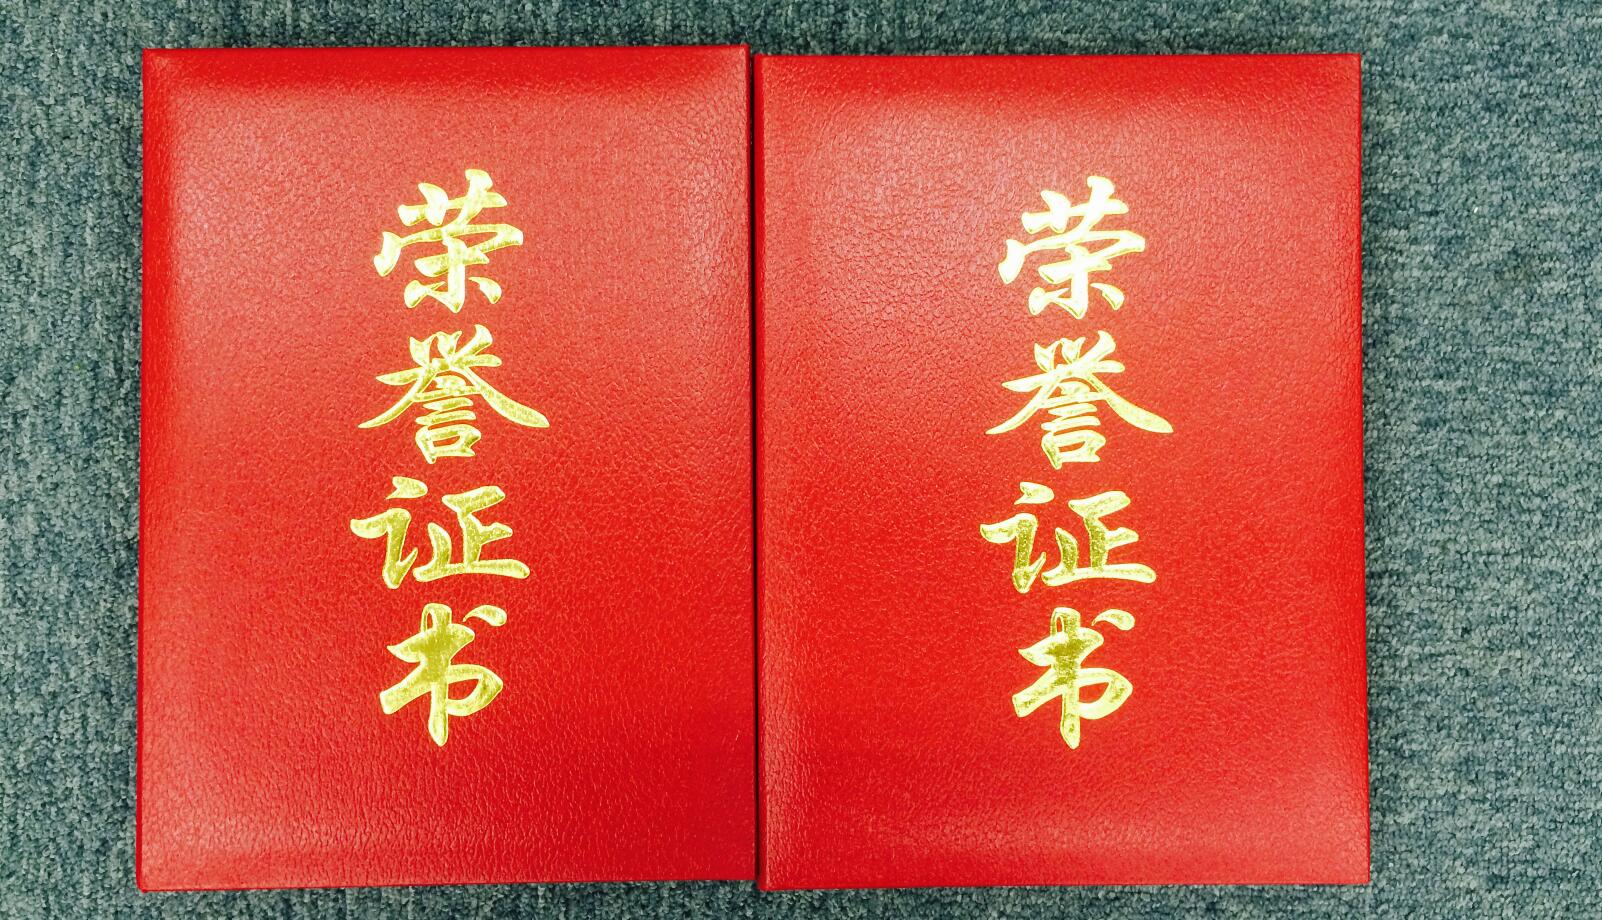 荣誉证书
荣誉证书